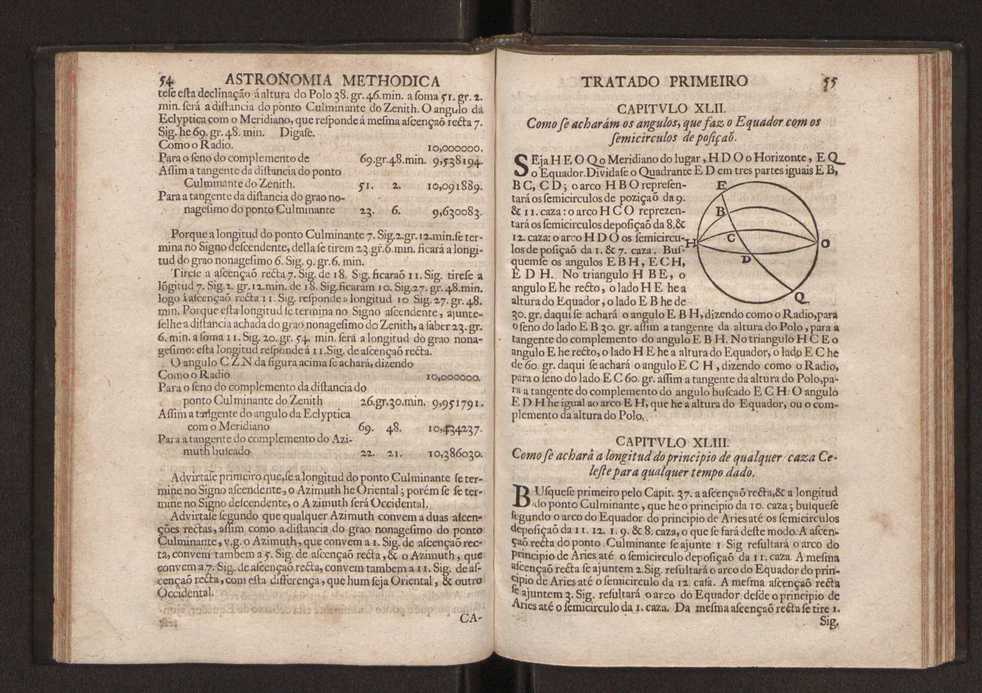 54 ASTRONOMIA METHODICA
tese esta declinação á altura do Polo 38. gr. 46. min. a soma 51. gr. 2.
min. será a distancia do ponto Culminante do Zenith. O angulo da
Eclyptica com o Meridiano, que responde á mesma ascenção recta 7.
Sig. he 69. gr. 48. min. Digase.
Como o Radio. 10,000000.
Para o seno do complemento de 69.gr.48.min. 9,538194.
Assim a tangente da distancia do ponto
Culminante do Zenith. 51. 2. 10,091889.
Para a tangente da distancia do grao no-
nagesimo do ponto Culminante 23. 6. 9,630083.
Porque a longitud do ponto Culminante 7. Sig.2.gr.12.min.se ter-
mina no Signo descendente, della se tirem 23.gr.6.min. ficará a longi-
tud do grao nonagesimo 6. Sig. 9. gr. 6. min.
Tirese a ascenção recta 7. Sig. de 18. Sig. ficaraõ 11. Sig. tirese a
lõgitud 7. Sig. 2. gr. 12. min. de 18. Sig. ficaram 10. Sig. 27. gr. 48. min.
logo á ascençaõ recta 11. Sig. responde a longitud 10 Sig. 27. gr. 48.
min. Porque esta longitud se termina no Signo ascendente, ajunte-
selhe a distancia achada do grao nonagesimo do Zenith, a saber 23. gr.
6. min. a soma 11. Sig. 20. gr. 54. min. será a longitud do grao nona-
gesimo: esta longitud responde á 11. Sig. de ascençaõ recta.
O angulo C Z N da figura acima se achará, dizendo
Como o Radio 10,000000.
Para o seno do complemento da distancia do
ponto Culminante do Zenith 26.gr.30.min. 9,951791.
Assim a tangente do angulo da Eclyptica
com o Meridiano 69. 48. 10,434237.
Para a tangente do complemento do Azi-
muth buscado 22. 21. 10,386030.
Advirtase primeiro que, se a longitud do ponto Culminante se ter-
mine no Signo ascendente, o Azimuth he Oriental; porèm se se ter-
mine no Signo descendente, o Azimuth será Occidental.
Advirtase segundo que qualquer Azimuth convem a duas ascen-
ções rectas, assim como a distancia do grao nonagesimo do ponto
Culminante, v.g. o Azimuth, que convem a 1. Sig. de ascençaõ rec-
ta, convem tambem a 5. Sig. de ascençaõ recta, & o Azimuth, que
convem a 7. Sig. de ascençaõ recta, convem tambem a 11. Sig. de as-
cençaõ recta, com esta differença, que hum seja Oriental, & outro
Occidental.
CA-
TRATADO PRIMEIRO 55
CAPITVLO XLII.
Como se acharám os angulos, que faz o Equador com os
semicirculos de posiçaõ.
SEja H E O Q o Meridiano do lugar, H D O o Horizonte, E Q
o Equador. Dividase o Quadrante E D em tres partes iguais E B,
B C, C D; o arco H B O represen-
tará os semicirculos de poziçaõ da 9.
& 11. caza: o arco H C O reprezen-
tará os semicirculos de posiçaõ da 8. &
12. caza: o arco H D O os semicircu-
los de posiçaõ da 1. & 7. caza. Bus-
quemse os angulos E B H, E C H,
E D H. No triangulo H B E, o
angulo E he recto, o lado H E he a
altura do Equador, o lado E B he de
30. gr. daqui se achará o angulo E B H, dizendo como o Radio, para
o seno do lado E B 30. gr. assim a tangente da altura do Polo, para a
tangente do complemento do angulo E B H. No triangulo H C E o
angulo E he recto, o lado H E he a altura do Equador, o lado E C he
de 60. gr. daqui se achará o angulo E C H, dizendo como o Radio,
para o seno do lado E C 60. gr. assim a tangente da altura do Polo, pa-
ra a tangente do complemento do angulo buscado E C H. O angulo
E D H he igual ao arco E H, que he a altura do Equador, ou o com-
plemento da altura do Polo.
E
B
C
D
H
O
Q
CAPITVLO XLIII.
Como se achará a longitud do principio de qualquer caza Ce-
leste para qualquer tempo dado.
BUsquese primeiro pelo Capit. 37. a ascençaõ recta, & a longitud
do ponto Culminante, que he o principio da 10. caza; busquese
segundo o arco do Equador do principio de Aries até os semicirculos
de posiçaõ da 11. 12. 1. 9. & 8. caza, o que se fará deste modo. A ascen-
çaõ recta do ponto Culminante se ajunte 1. Sig resultará o arco do
principio de Aries até o semicirculo de posiçaõ da 11. caza. A mesma
ascençaõ recta se ajuntem 2. Sig. resultará o arco do Equador do prin-
cipio de Aries até o semicirculo da 12. casa. A mesma ascençaõ recta
se ajuntem 3. Sig. resultará o arco do Equador desde o principio de
Aries até o semicirculo da 1. caza. Da mesma ascençaõ recta se tire 1.
Sig.